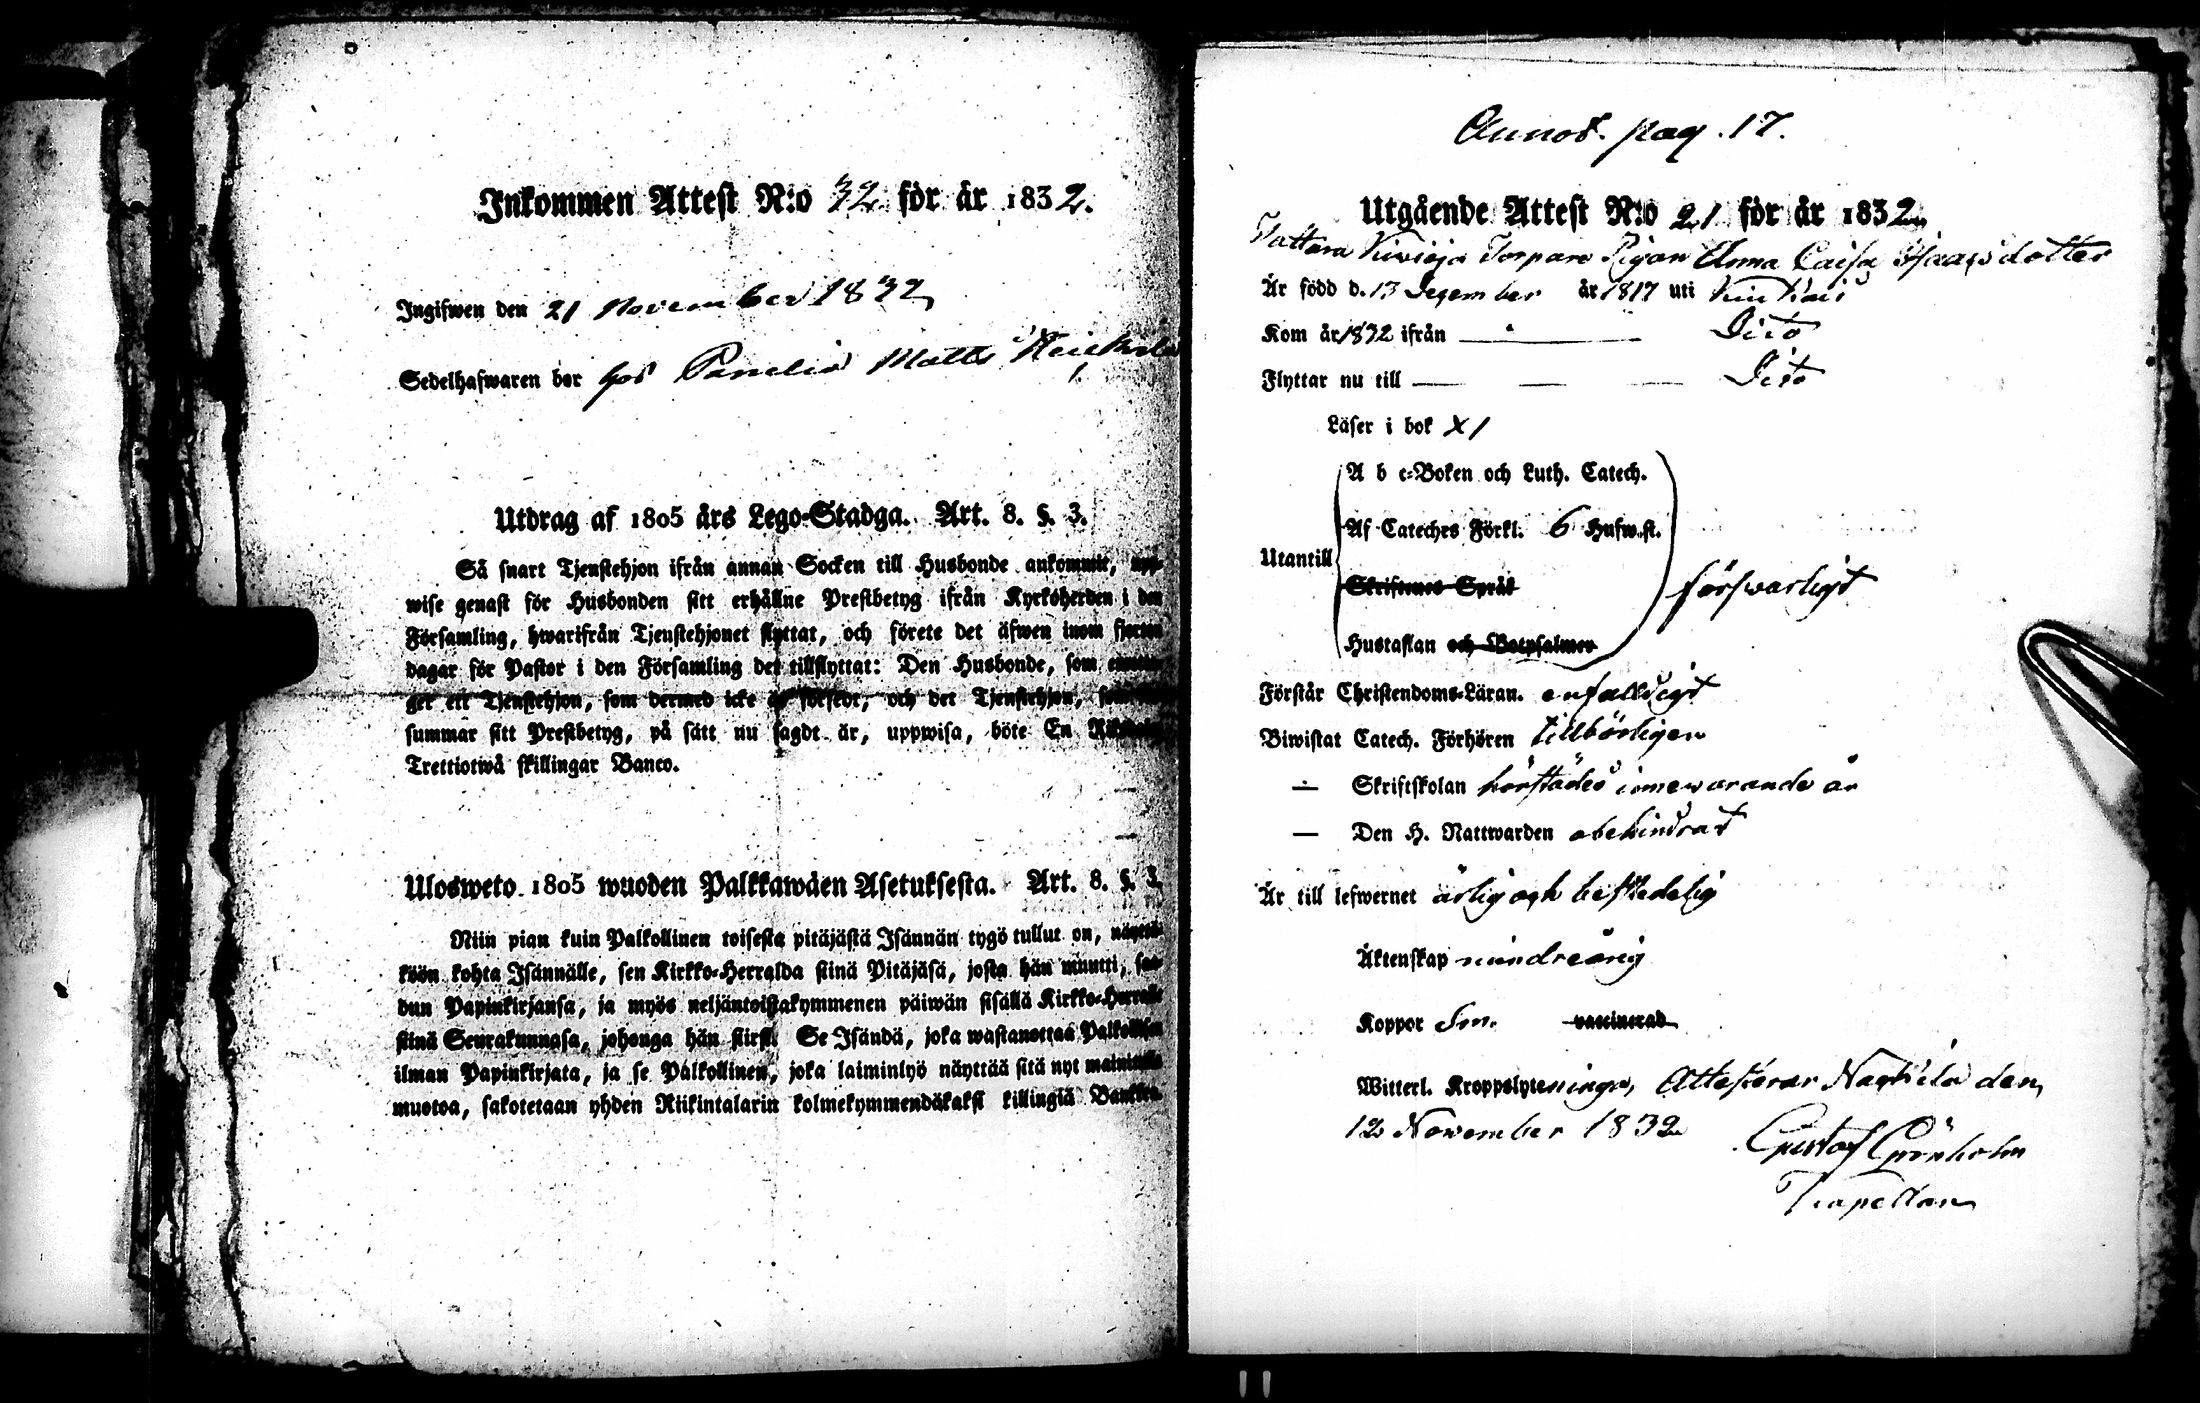 Inkommen Attest N:o 32 för år 1832.
Ingifwen den 21 November 1832
Sedelhafwaren bor hos Panelia Matts
Utdrag af 1805 års Lego-Stadga. Art. 8. §. 3.
Så snart Tjenstehjon ifrån annan Socken till Husbonde ankommit, upp-
wise genast för Husbonden sitt erhållne Prestbetyg ifrån Kyrkoherden i den
Församling, hwarifrån Tjenstehjonet flyttat, och förete det äfwen inom fjorton
dagar för Pastor i den Församling det tillflyttat: Den Husbonde, som
ger ett Tjenstehjon, som dermed icke är försedt, och det Tjenstehjon, som
summar sitt Prestbetyg, på sätt nu sagdt är, uppwisa, böte En
Trettiotwå skillingar Banco.
Ulosweto 1805 wuoden Palkkawäen Asetuksesta. Art. 8. §. 3.
Niin pian kuin Palkollinen toisesta pitäjästä Isännän tygö tullut on, näyttä-
köön kohta Isännälle, sen Kirkko-Herralda siinä Pitäjäsä, josta hän muutti, saa-
dun Papinkirjansa, ja myös neljäntoistakymmenen päiwän sisällä Kirkko-Herralle
siinä Seurakunnasa, johonga hän siirsi. Se Isändä, joka wastanottaa Palkollisen
ilman Papinkirjata, ja se Palkollinen, joka laiminlyö näyttää sitä nyt mainitulla
muotoa, sakotetaan yhden Riikintalarin kolmekymmendäkaksi killingiä Bankko.
Annot. pag. 17.
Utgående Attest N:o 21 för år 1832
Torpare Pigan Anna Caisa Isaacsdotter
Är född d. 13 December år 1817 uti Kiukais
Kom år 1832 ifrån — " — Dito
Flyttar nu till — — — Dito
Läser i bok X 1
A b c-Boken och Luth. Catech.
Af Cateches Förkl. 6 Hufw.st.
Utantill
Skriftenes Språk
försvarligt
Hustaflan och Botpsalmer
Förstår Christendoms-Läran. enfalldigt
Biwistat Catech. Förhören tillbörligen
— Skriftskolan härstädes innewarande år
— Den H. Nattwarden obehindrat
Är till lefwernet ärlig och beskedelig
Äktenskap minderårig
Koppor Sm. vaccinerad
Witterl. Kroppslyte ninga, Attesterar Nackila den
12 November 1832
Gustaf Grönholm
Capellan